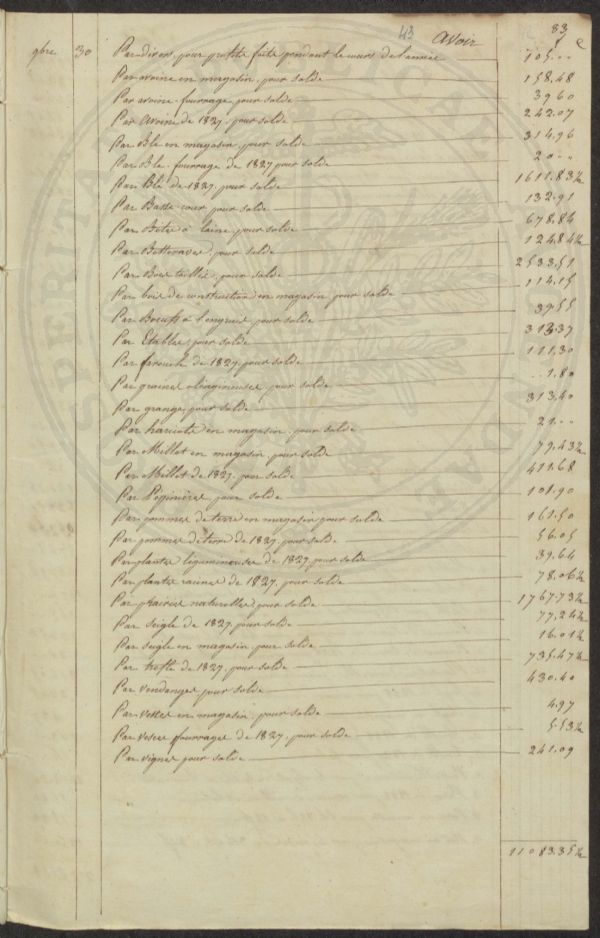 43 Avoir 83
f c
9bre 30 Par divers, pour profits faits pendant le cours de l'année 105.--
Par avoine en magasin, pour solde 158.48
Par avoine-fourrage, pour solde 39.60
Par Avoine de 1827. pour solde 242.07
Par Blé en magasin, pour solde 314.96
Par Blé-fourrage de 1827 pour solde 20.--
Par Blé de 1827, pour solde 1611.83½
Par Basse-cour, pour solde 132.91
Par Bêtes à laine, pour solde 678.84
Par Betteraves, pour solde 124.84½
Par Bois taillis, pour solde 2533.51
Par bois de construction en magasin, pour solde 114.15
Par Boeufs à l'engrais, pour solde 39.55
Par Etables, pour solde 313.37
Par farouch de 1827. pour solde 111.30
Par graines oléagineuses, pour solde ..1.80
Par grange, pour solde 313.40
Par haricots en magasin, pour solde 21.--
Par Millet en magasin, pour solde 79.43½
Par Millet de 1827. pour solde 411.68
Par Pépinières pour solde 101.90
Par pommes de terre en magasin, pour solde 161.50
Par pommes de terre de 1827. pour solde 56.05
Par plantes légumineuses de 1827. pour solde 39.64
Par plantes racines de 1827. pour solde 78.06½
Par prairies naturelles, pour solde 1767.73½
Par seigle de 1827. pour solde 77.24½
Par seigle en magasin, pour solde 16.01½
Par trèfle de 1827. pour solde 735.47½
Par vendanges, pour solde 430.40
Par vesces en magasin, pour solde 4.97
Par vesces fourrages de 1827. pour solde 5.53½
Par vignes pour solde 241.09
11083.35½